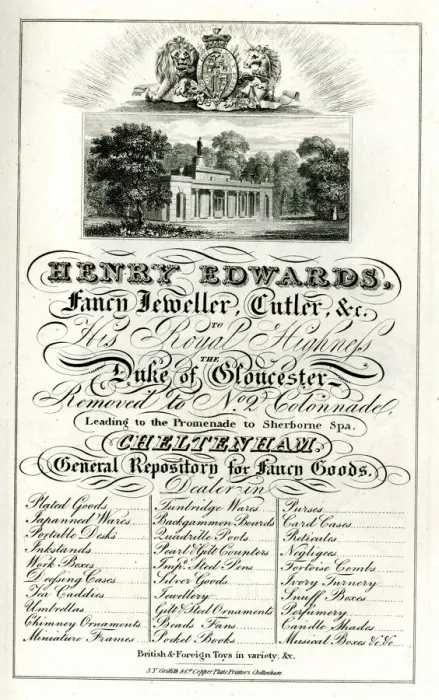 HENRY EDWARDS,
Fancy Jeweller, Cutler, &c.
TO
His Royal Highness
THE
Duke of Gloucester
Removed to No. 2 Colonnade,
Leading to the Promenade to Sherborne Spa,
CHELTENHAM,
General Repository for Fancy Goods.
Dealer in
Plated Goods
Japanned Wares
Portable Desks
Inkstands
Work Boxes
Dressing Cases
Tea Caddies
Umbrellas
Chimney Ornaments
Miniature Frames
Tunbridge Wares
Backgammon Boards
Quadrille Pools
Pearl & Gilt Counters
Imp. Steel Pens
Silver Goods
Jewellery
Gilt & Steel Ornaments
Beads Fans
Pocket Books
Purses
Card Cases
Reticules
Negligees
Tortoise Combs
Ivory Turnery
Snuff Boxes
Perfumery
Candle Shades
Musical Boxes &c &c
British & Foreign Toys in variety, &c.
S.Y. Griffith & Co. Copper Plate Printers Cheltenham